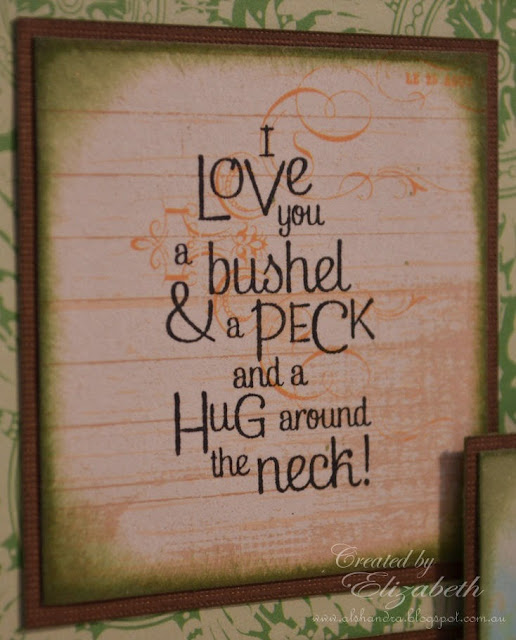 I
LOVe
you
a bushel
& a PECK
and a
HuG around
the neck!
Created by
Elizabeth
www.alshandra.blogspot.com.au